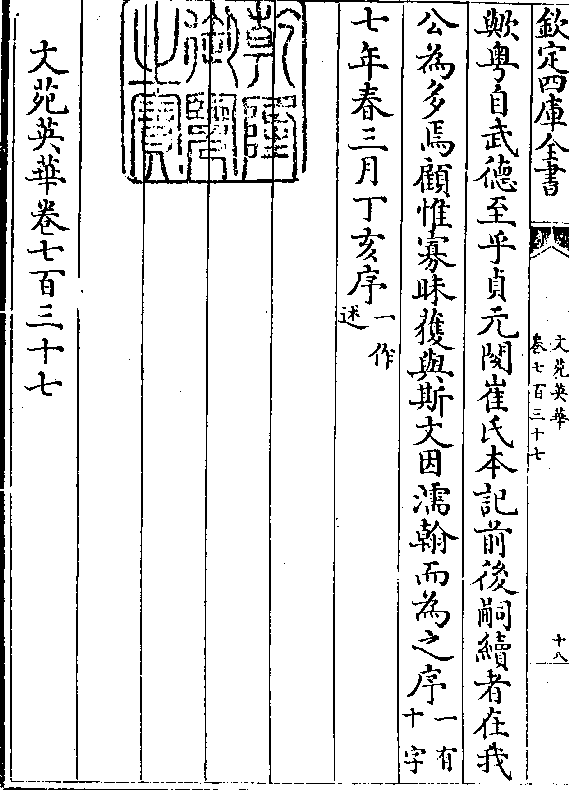 欽定四庫全書
文苑英華
卷七百三十七
十八
歟粤自武德至乎貞元閲崔氏本記前後嗣續者在我
公為多焉顧惟寡昧獲與斯文因濡翰而為之序一有十字
七年春三月丁亥序一作述
乾隆
御覽
之寳
文苑英華卷七百三十七